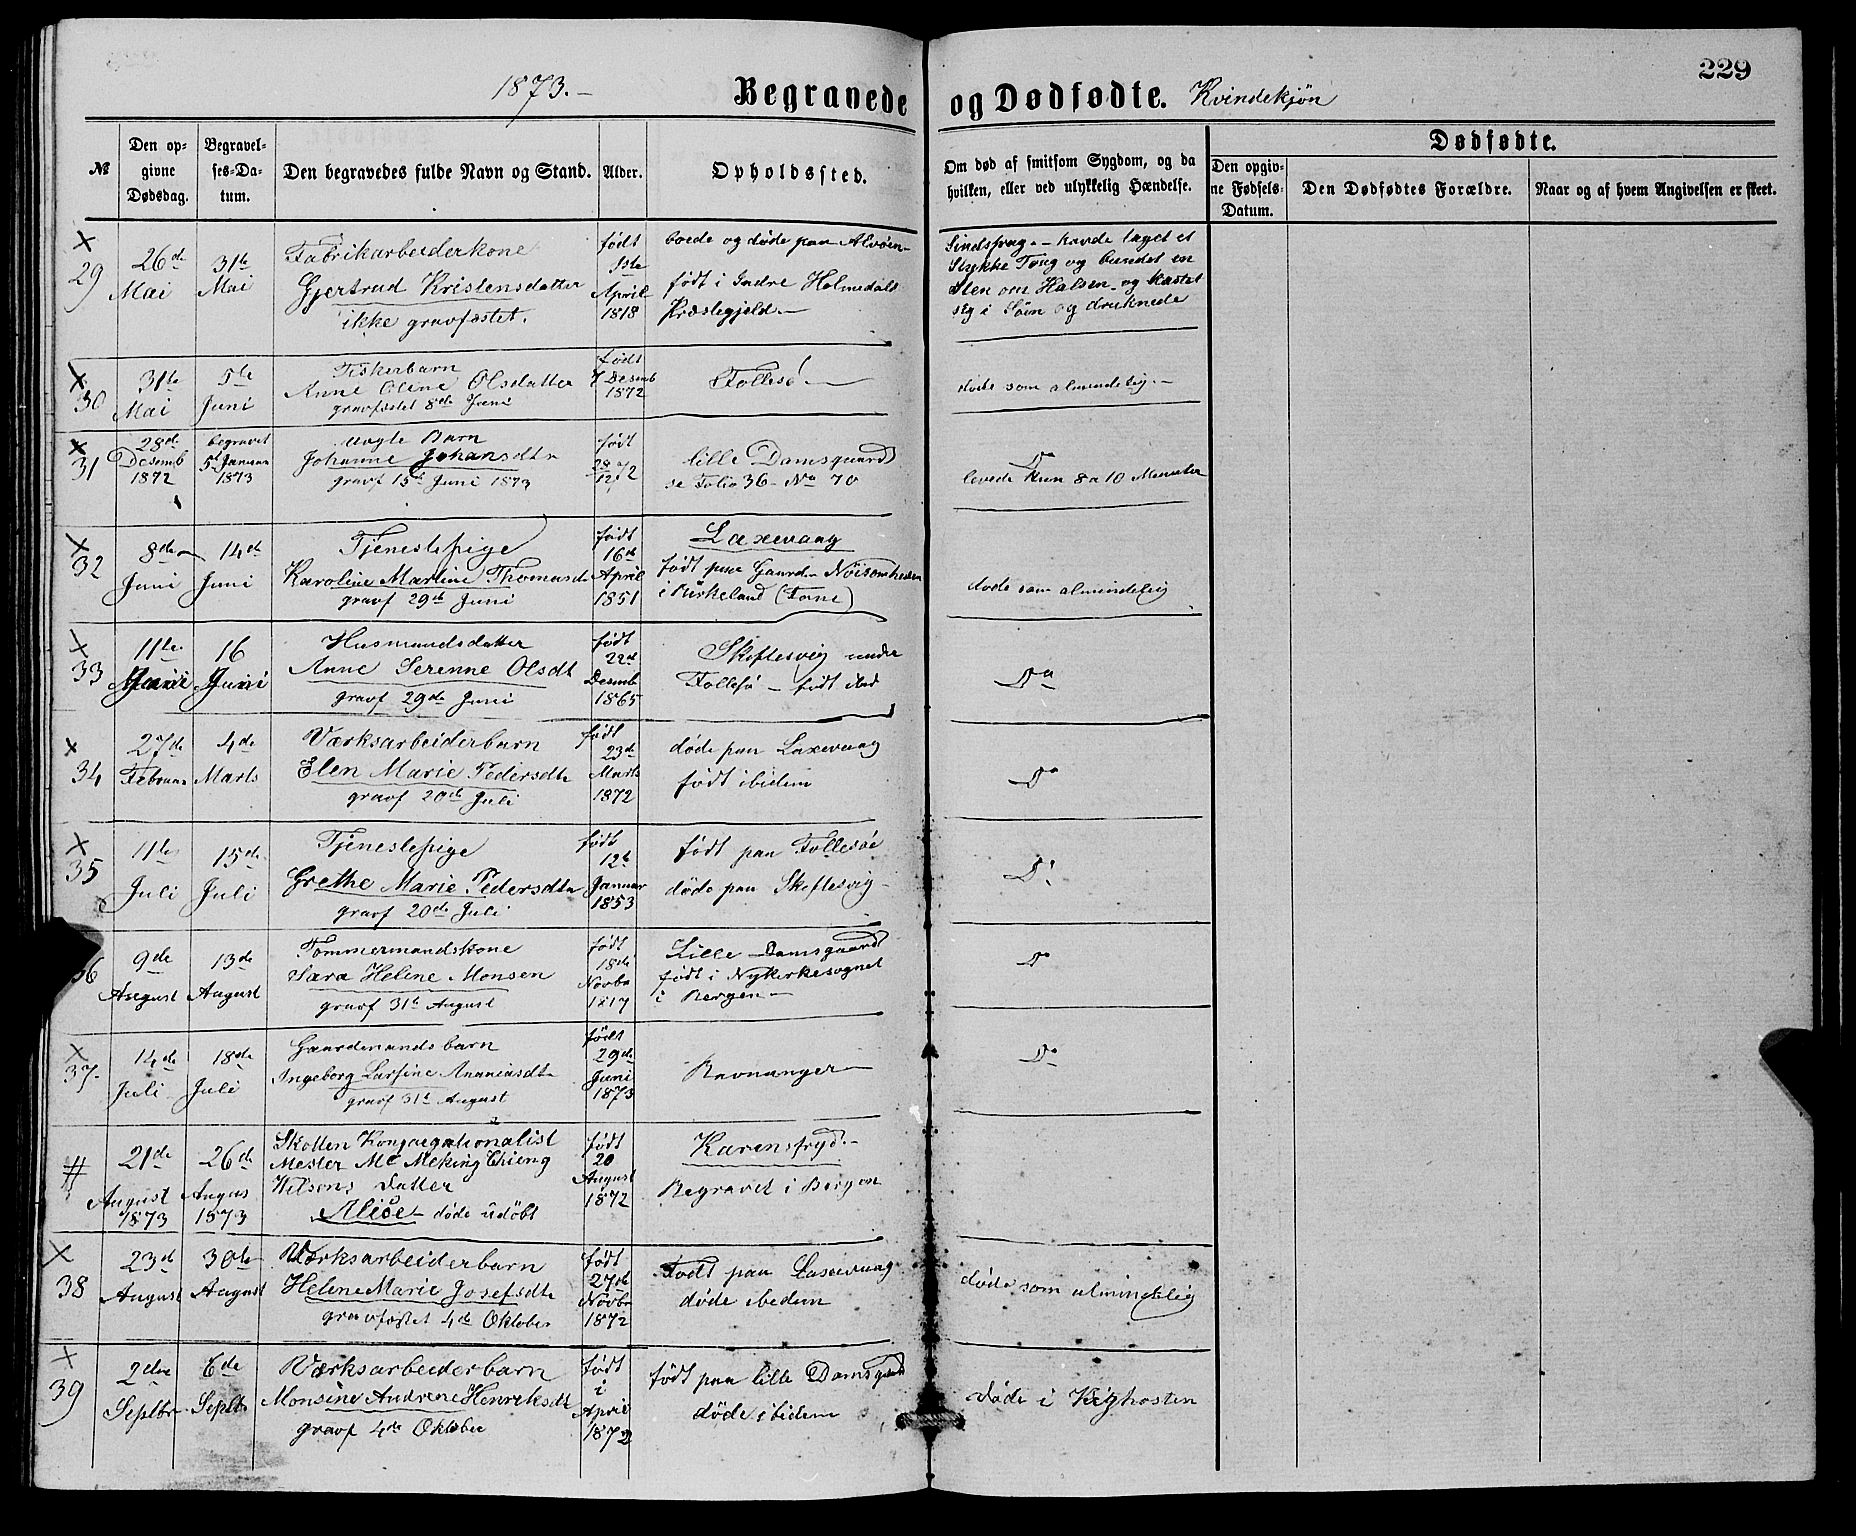 229
1873.-
Begravede og Dødfødte. Kvindekjøn
№
Den op-
givne
Dødsdag.
Begravel-
ses-Da-
tum.
Den begravedes fulde Navn og Stand.
Alder.
Opholdssted.
Om død af smitsom Sygdom, og da
hvilken, eller ved ulykkelig Hændelse.
Dødfødte.
Den opgiv-
ne Fødsels-
Datum.
Den Dødfødtes Forældre.
Naar og af hvem Angivelsen er skeet.
× 29
26de
Mai
31te
Mai
Fabrikarbeiderkone
Gjertrud Kristensdatter
ikke gravfæstet.
født
1ste
April
1818
boede og døde paa Alvøen
født i Indre Holmedals
Præstegjeld.-
Sindssvag.- havde taget et
Stykke Toug og bundet en
Sten om Halsen og kastet
sig i Søen og druknede
× 30
31te
Mai
5te
Juni
Fiskerbarn
Anne Oline Olsdatter
gravfæstet 8de Juni
født
7 Desemb
1872
Follesø.-
døde som almindelig.-
× 31
28de
Desemb
1872
begravet
5te Januar
1873
uægte Barn
Johanne Johansdtr
gravf 15de Juni 1873
født
28/12 72
lille Damsgaard
se Folio 36 No 70
Do
levede kun 8 a 10 Menuter
× 32
8de
Juni
14de
Juni
Tjenestepige
Karoline Martine Thomasd
gravf 29de Juni
født
16de
April
1851
Laxevaag
født paa Gaarden Nöisomheden
i Birkeland (Fane)
døde som almindelig
× 33
11te
Juni
16
Juni
Husmandsdatter
Anne Serenne Olsdt
gravf 29de Juni
født
22de
Desemb
1865
Skiftesvig under
Follesø - født ibid
Do
× 34
27de
Februar
4de
Marts
Værksarbeiderbarn
Elen Marie Pedersdtr
gravf 20de Juli
født
23de
Marts
1872
døde paa Laxevaag
født ibidem
Do
× 35
11te
Juli
15de
Juli
Tjenestepige
Grethe Marie Pedersdtr
gravf 20de Juli
født
12te
Januar
1853
født paa Follesøe
døde paa Skiftesvig
Do
36
9de
August
13de
August
Tømmermandskone
Sara Helene Monsen
gravf 31te August
født
18de
Novbr
1817
Lille Damsgaard
født i Nykirkesognet
i Bergen
Do
× 37.
14de
Juli
18de
Juli
Gaardmandsbarn
Ingeborg Larsine Ananiasdtr
gravf 31te August
født
29de
Juni
1873
Ravnanger
Do
#
21de
August
1873
26de
Augus
1873
Skotten Kongregationalist
Mester Mc Meking Chieng
Wilsons Datter
Alice - døde udöbt
født
20
August
1872
Karensfryd.-
Begravet i Bergen
× 38
23de
August
30te
August
Værksarbeiderbarn
Helene Marie Josefsdtr
gravfæstet 4de Oktober
født
27de
Novbr
1872
Født paa Laxevaag
døde ibidem
døde som almindelig
× 39
2den
Septbr
6de
Septbr
Værksarbeiderbarn
Monsine Andrine Henriksdt
gravf 4de Oktober
født
i
April
1872
født paa lille Damsgaard
døde ibidem
Døde i Kighosten